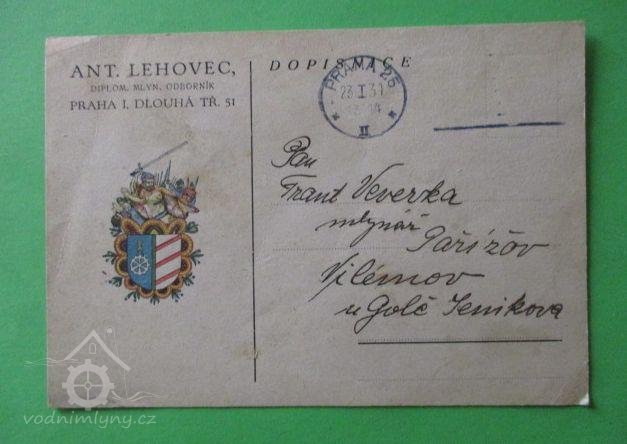 ANT. LEHOVEC,
DIPLOM. MLYN. ODBORNÍK
PRAHA I, DLOUHÁ TŘ. 51
DOPISNICE
PRAHA 25
23. I 31
II
Pan
Frant Veverka
mlynář
Pařížov
Vilémov
u Golč Jenikova
vodnimlyny.cz